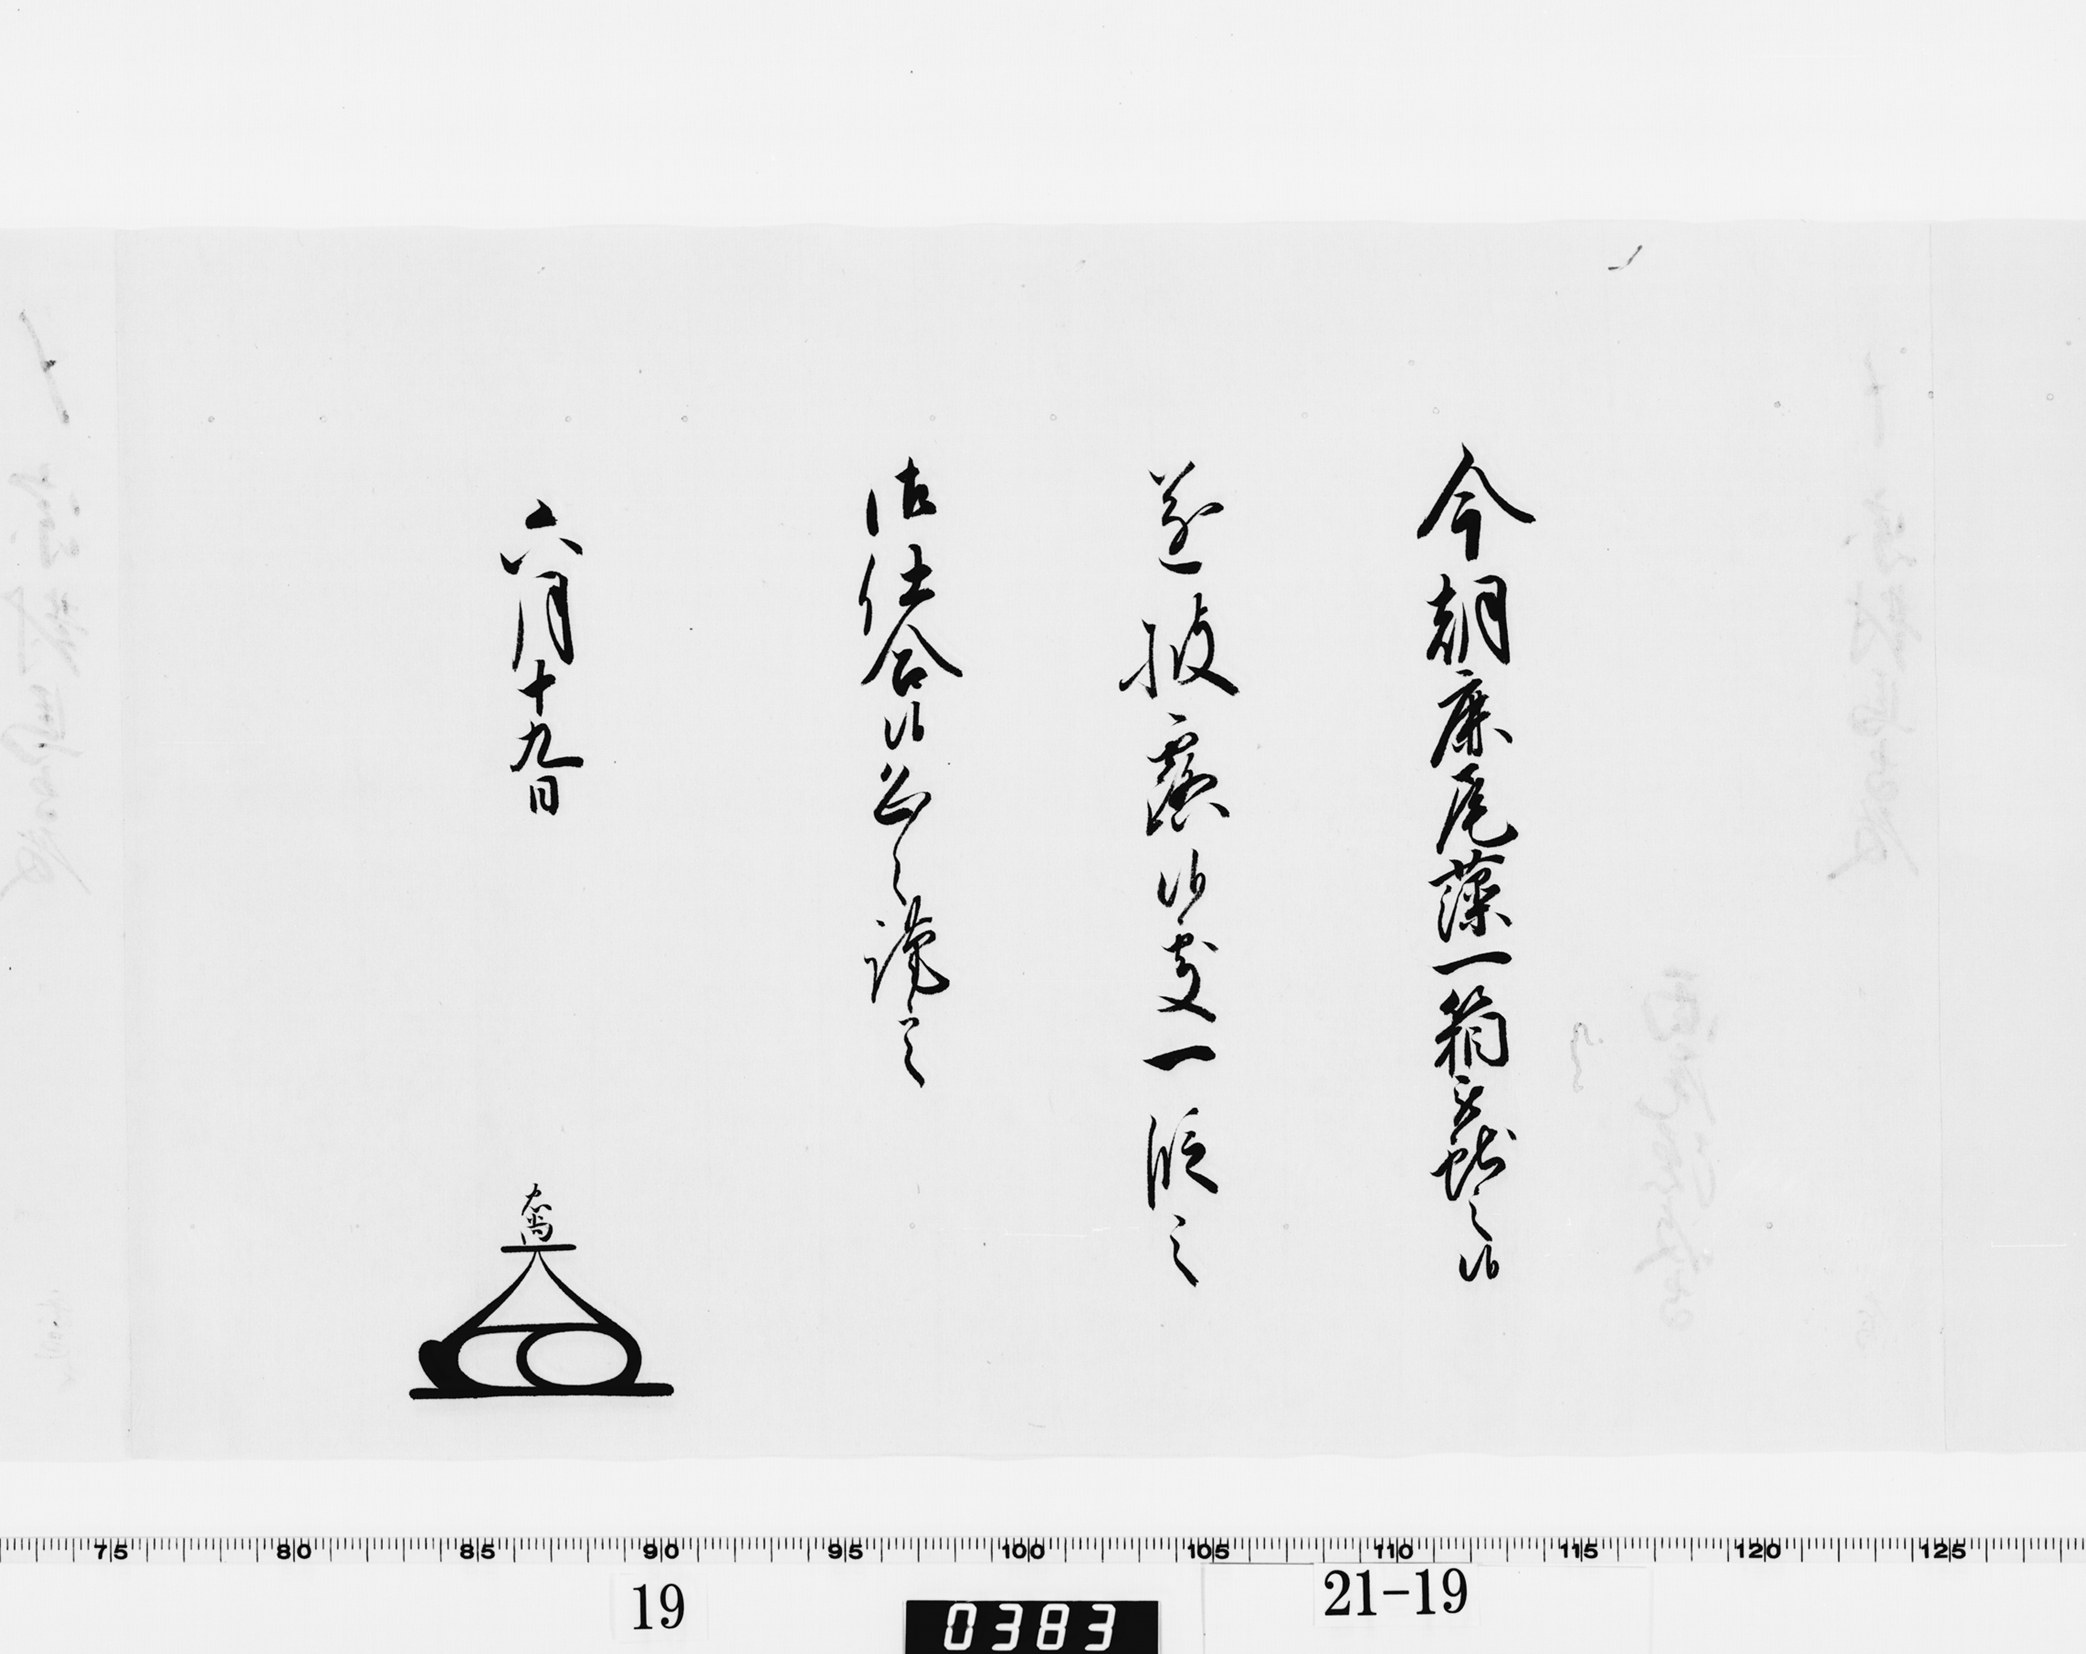 今朝鹿尾藻一箱被献之候
遂披露候處一段之
御仕合候恐々謹言
六月十九日
75 80 85 90 95 100 105 110 115 120 125
19
0383
21-19